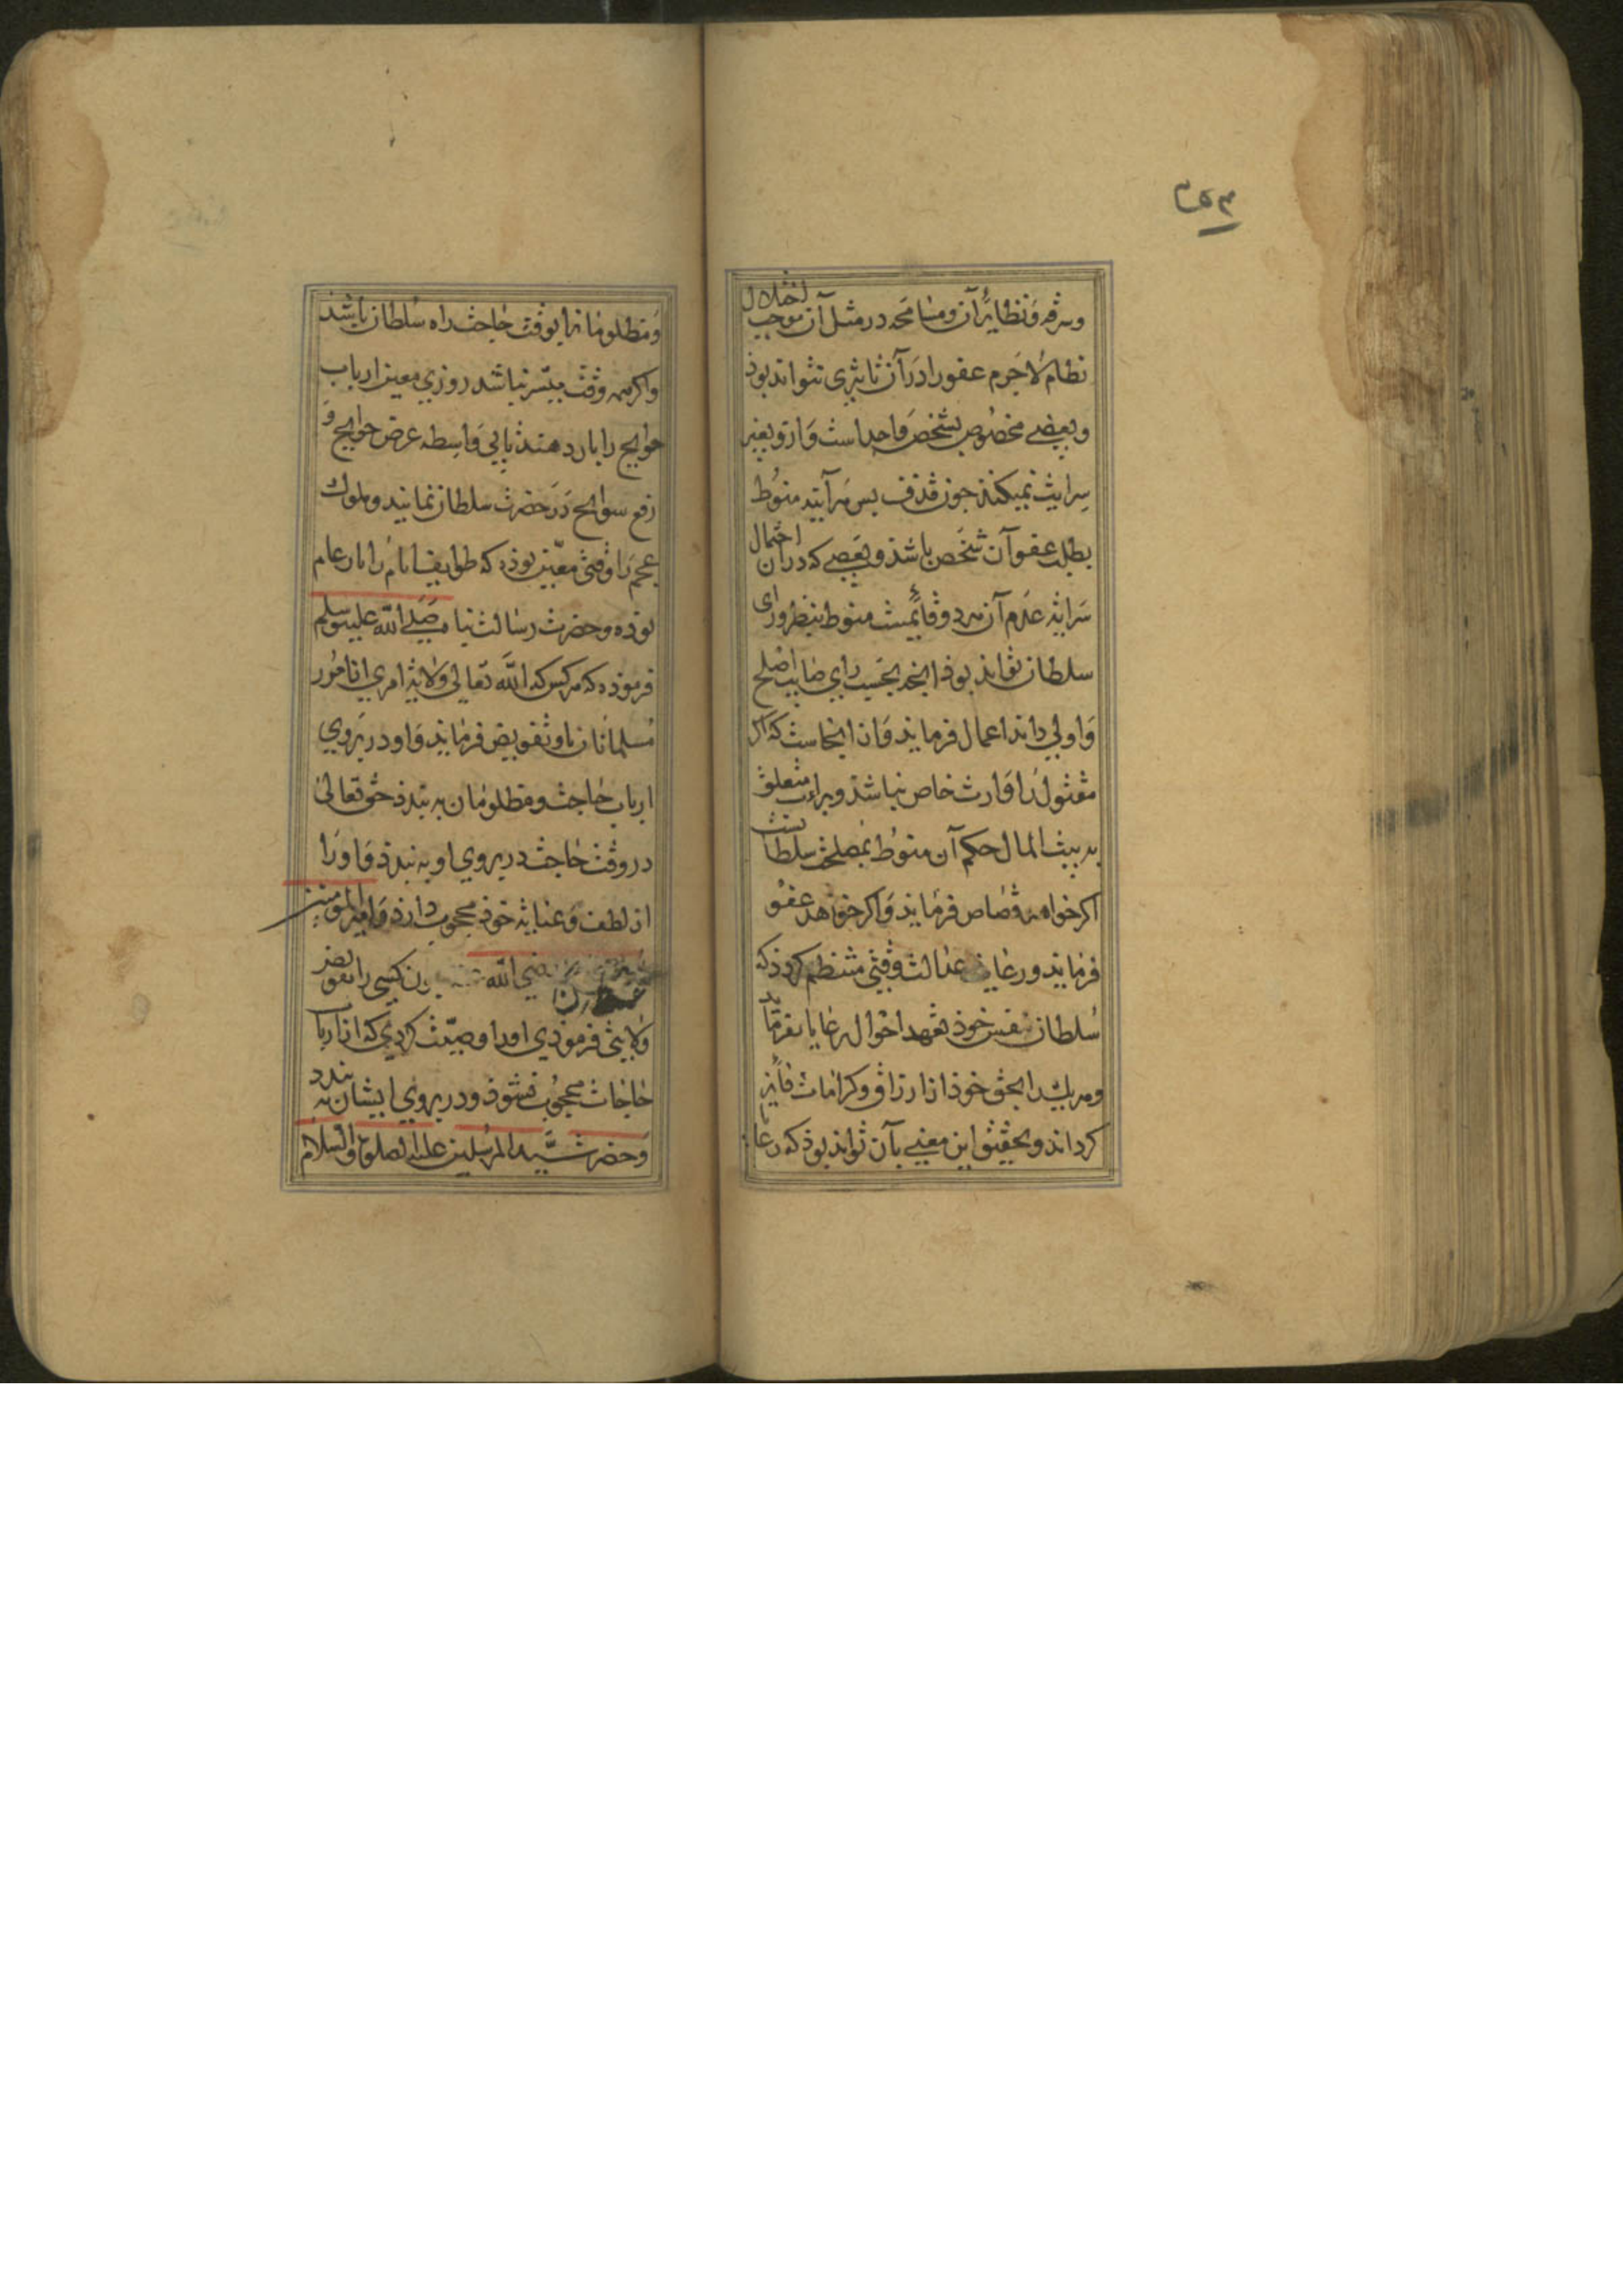 ۳۵۳
وسرقه ونظایر آن ومسامحه در مثل آن موجب اختلال
نظام لاجرم عفورا در آن تاثیری نتواند بوذ
وبعضی مخصوص بشخص واحد است وازو بغیر
سرایت نمیکند جون قذف بس هرآینه منوط
بطلب عفو آن شخص باشد وبعضی که دران احتمال
سرایه عدم آن هردو قایمست منوط بنظر ورای
سلطان تواند بوذ انجه بحسب رای صایب اصلح
واولی داند اعمال فرماید واز انجاست که اکر
مقتول را وارث خاص نباشد ومیراث متعلق
به بیت المال حکم آن منوط بمصلحت سلطانست
اکر خواهد قصاص فرماید واکر خواهد عفو
فرماید ورعایت عدالت وقتی منتظم کردذ که
سلطان بنفس خوذ تعهد احوال رعایا بفرماید
وهریک را بحق خوذ از ارزاق وکرامات فایز
کرداند وتحقیق این معنی بآن تواند بوذ که رعایا
ومظلومانرا بوقت حاجت راه سلطان باشد
واکر همه وقت میسر نباشد روزی معین ارباب
حوایج را بار دهند تا بی واسطه عرض حوایج و
رفع سوانح در حضرت سلطان نمایند وملوک
عجم را وقتی معین بوذه که طوایف انام را بار عام
بوده وحضرت رسالت پناه صلی الله علیه وسلم
فرموذه که هرکس که الله تعالی ولایه امری از امور
مسلمانان باو تفویض فرماید واو در بروی
ارباب حاجت ومظلومان به بندد حق تعالی
در وقت حاجت در بروی او به بندد واورا
از لطف وعنایه خوذ محجوب دارد وامیرالمومنین
رضی الله کسی را تفویض
ولایتی فرموذی اورا وصیت کردی که از ارباب
حاجات محجوب مشوذ ودر بروی ایشان به بندد
وحضرت سید المرسلین علیه الصلوة والسلام